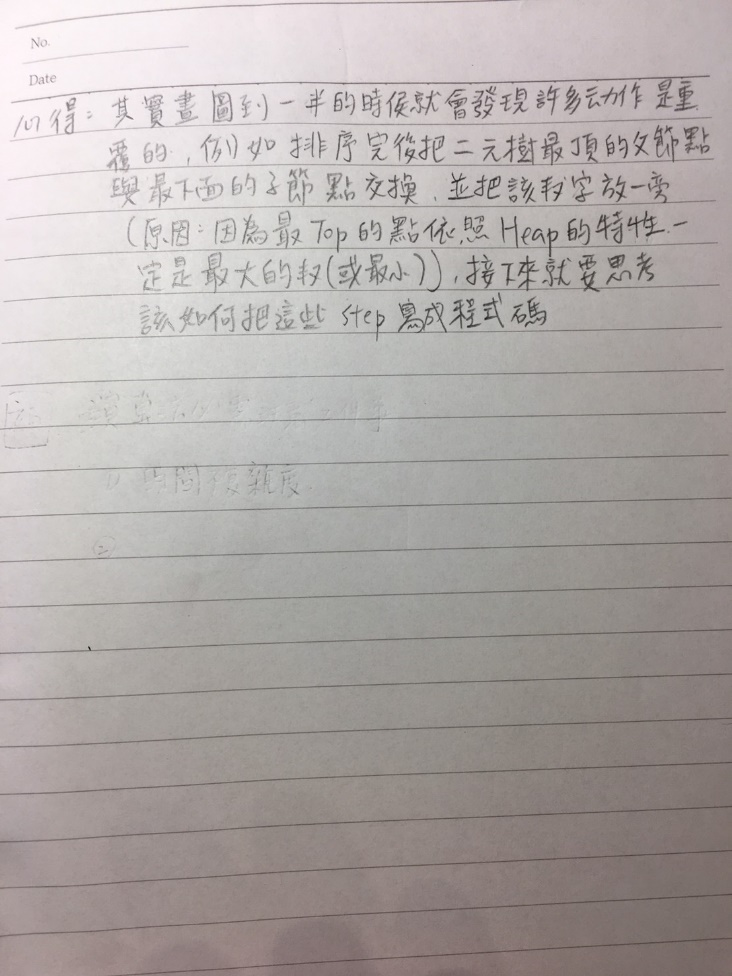 No.
Date
心得：其實畫圖到一半的時侯就會發現許多动作是重
覆的，例如排序完後把二元樹最頂的父節點
與最下面的子節點交換，並把該数字放一旁
(原因：因為最Top的點依照Heap的特性，一
定是最大的数(或最小))，接下來就要思考
該如何把這些step寫成程式碼
時間複雜度